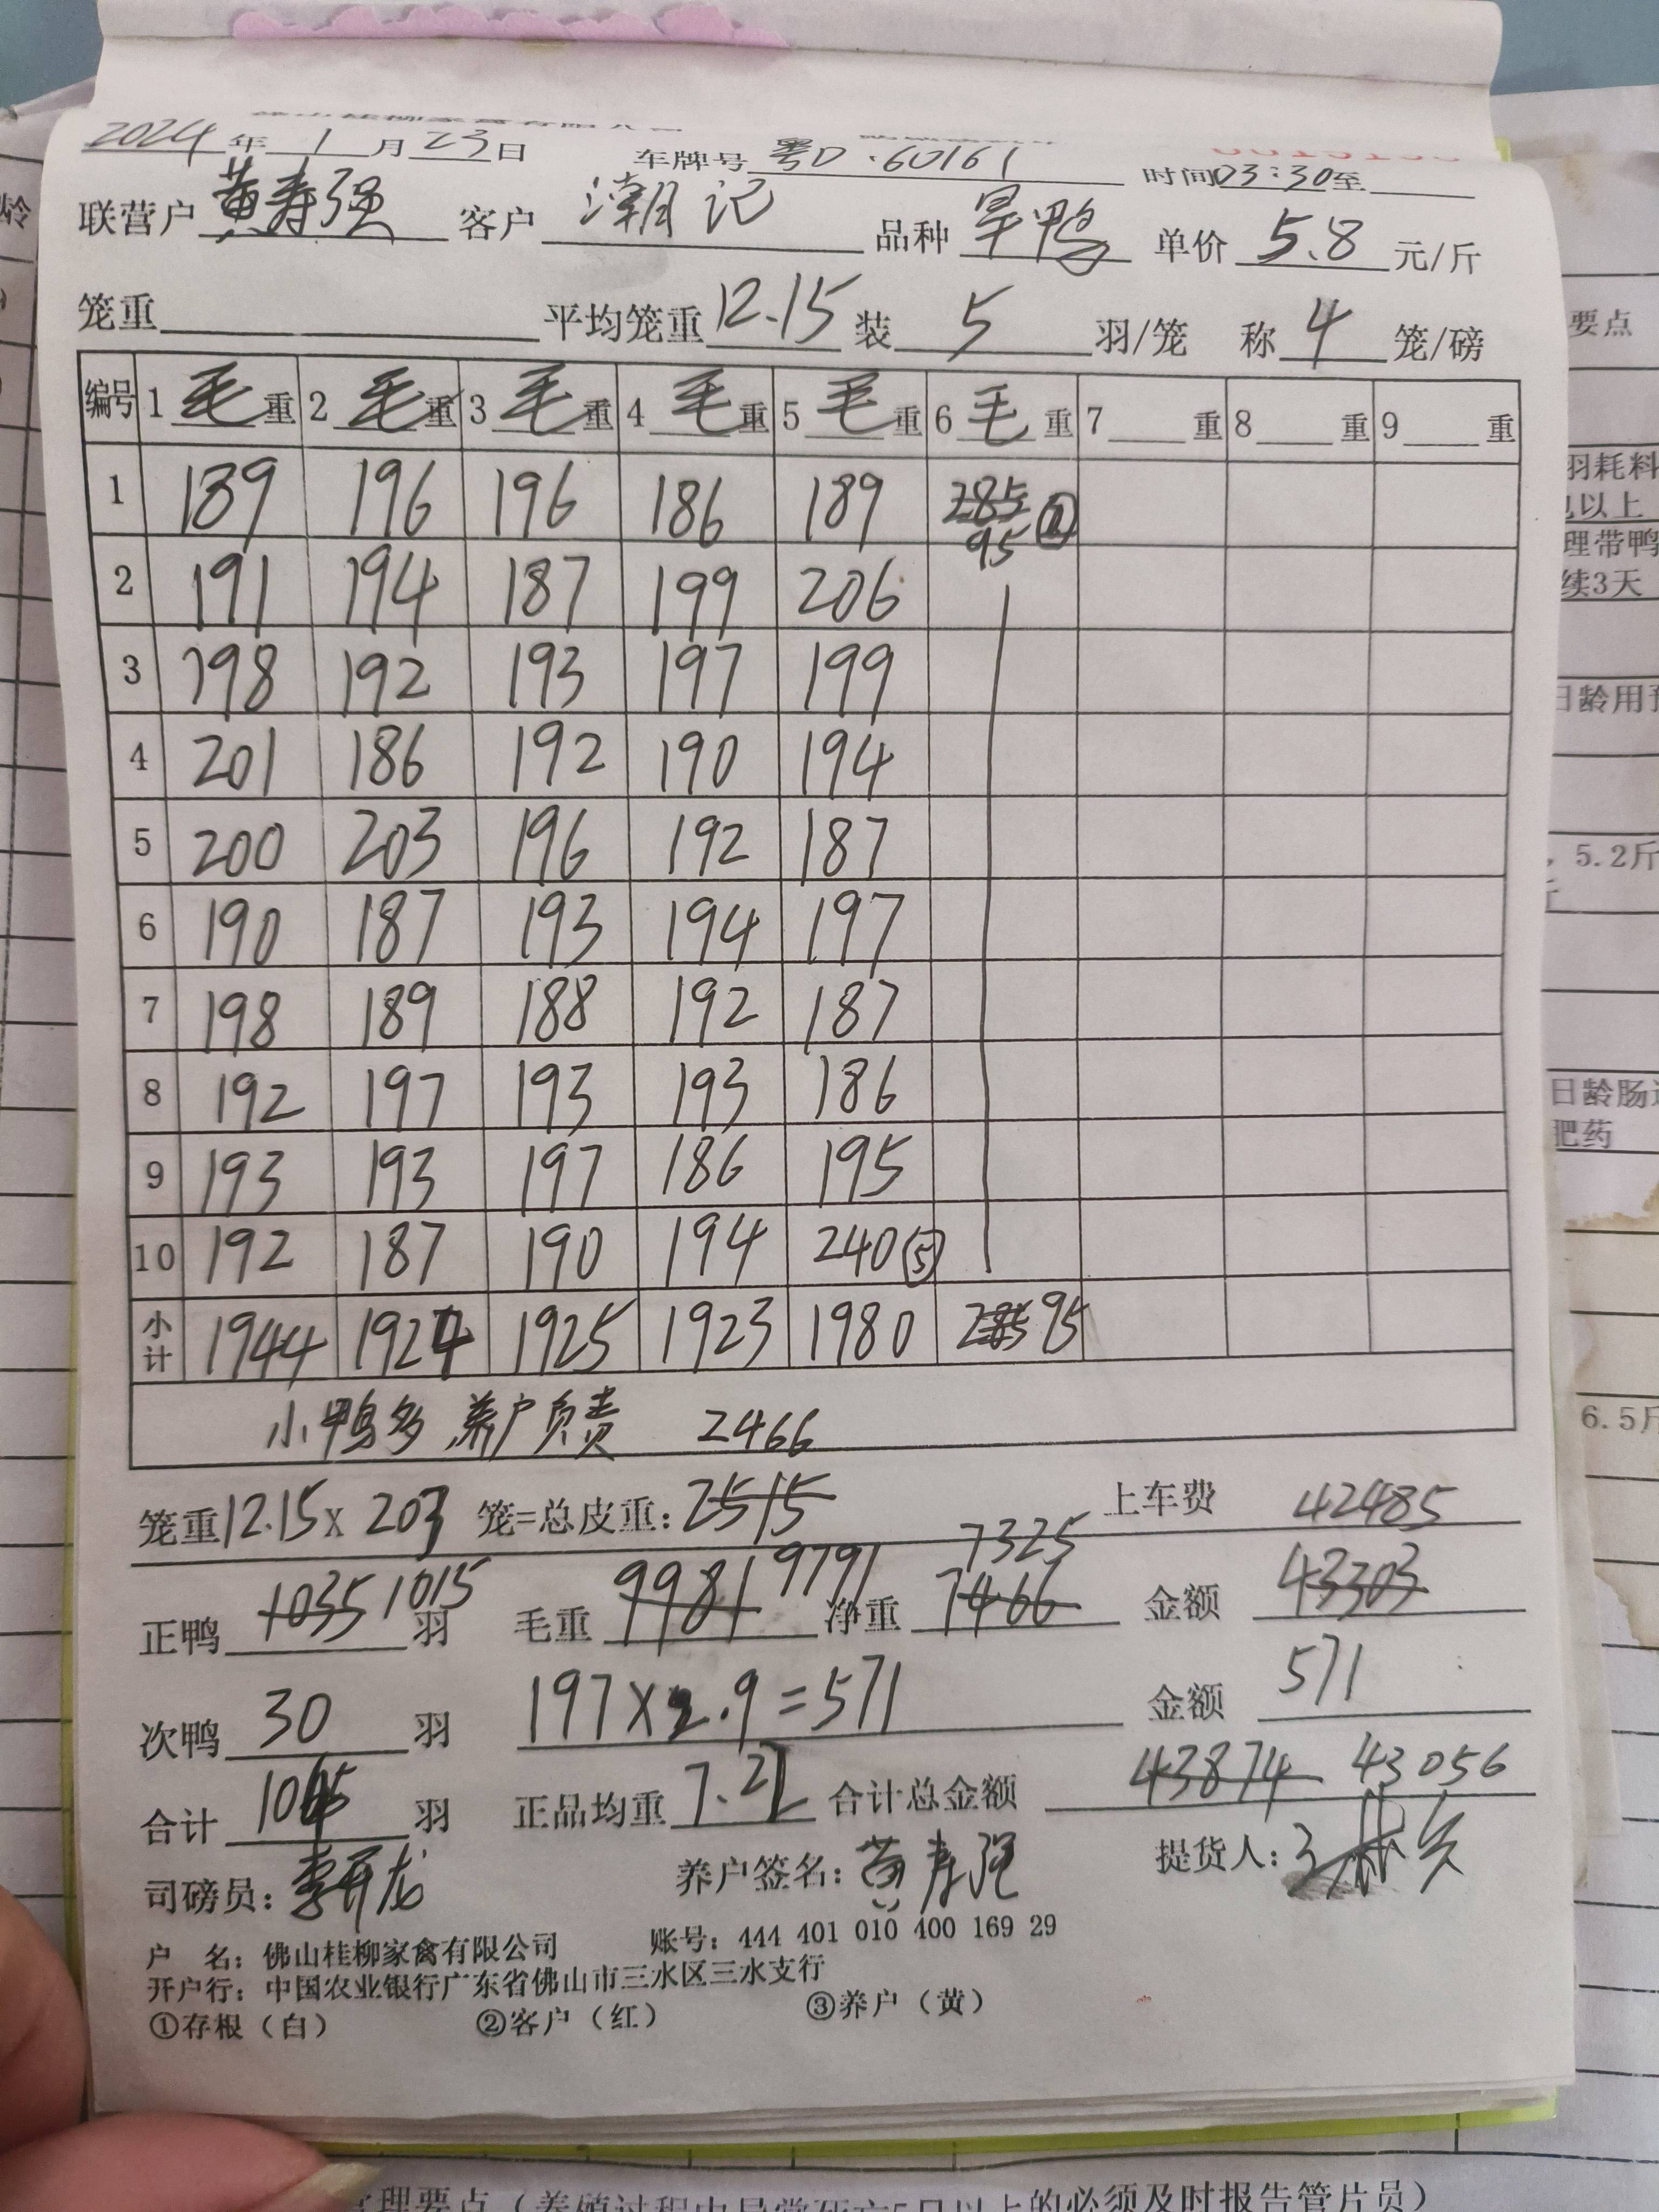 2024年1月23日 车牌号 粤D·60161 时间03:30至
联营户 黄寿强 客户 潮记 品种 旱鸭 单价 5.8 元/斤
笼重 平均笼重 12.15 装 5 羽/笼 称 4 笼/磅
编号 1 毛 重 2 毛 重 3 毛 重 4 毛 重 5 毛 重 6 毛 重 7 重 8 重 9 重
1 189 196 196 186 189 285 95 ②
2 191 194 187 199 206
3 198 192 193 197 199
4 201 186 192 190 194
5 200 203 196 192 187
6 190 187 193 194 197
7 198 189 188 192 187
8 192 197 193 193 186
9 193 193 197 186 195
10 192 187 190 194 240 ⑤
小计 1944 1924 1925 1923 1980 285 95
小鸭多 养户负责 2466
笼重 12.15 X 203 笼=总皮重: 2515 上车费 42485
正鸭 1035 1015 羽 毛重 9981 9791 净重 7466 7325 金额 43303
次鸭 30 羽 197 X 2.9 = 571 金额 571
合计 1045 羽 正品均重 7.22 合计总金额 43874 43056
司磅员: 李开龙 养户签名: 黄寿强 提货人:
户 名: 佛山桂柳家禽有限公司 账号: 444 401 010 400 169 29
开户行: 中国农业银行广东省佛山市三水区三水支行
①存根（白） ②客户（红） ③养户（黄）
龄
要点
羽耗料
以上
理带鸭
续3天
日龄用
5.2斤
日龄肠
肥药
6.5斤
管理要点（养殖过程中异常死亡5只以上的必须及时报告管片员）